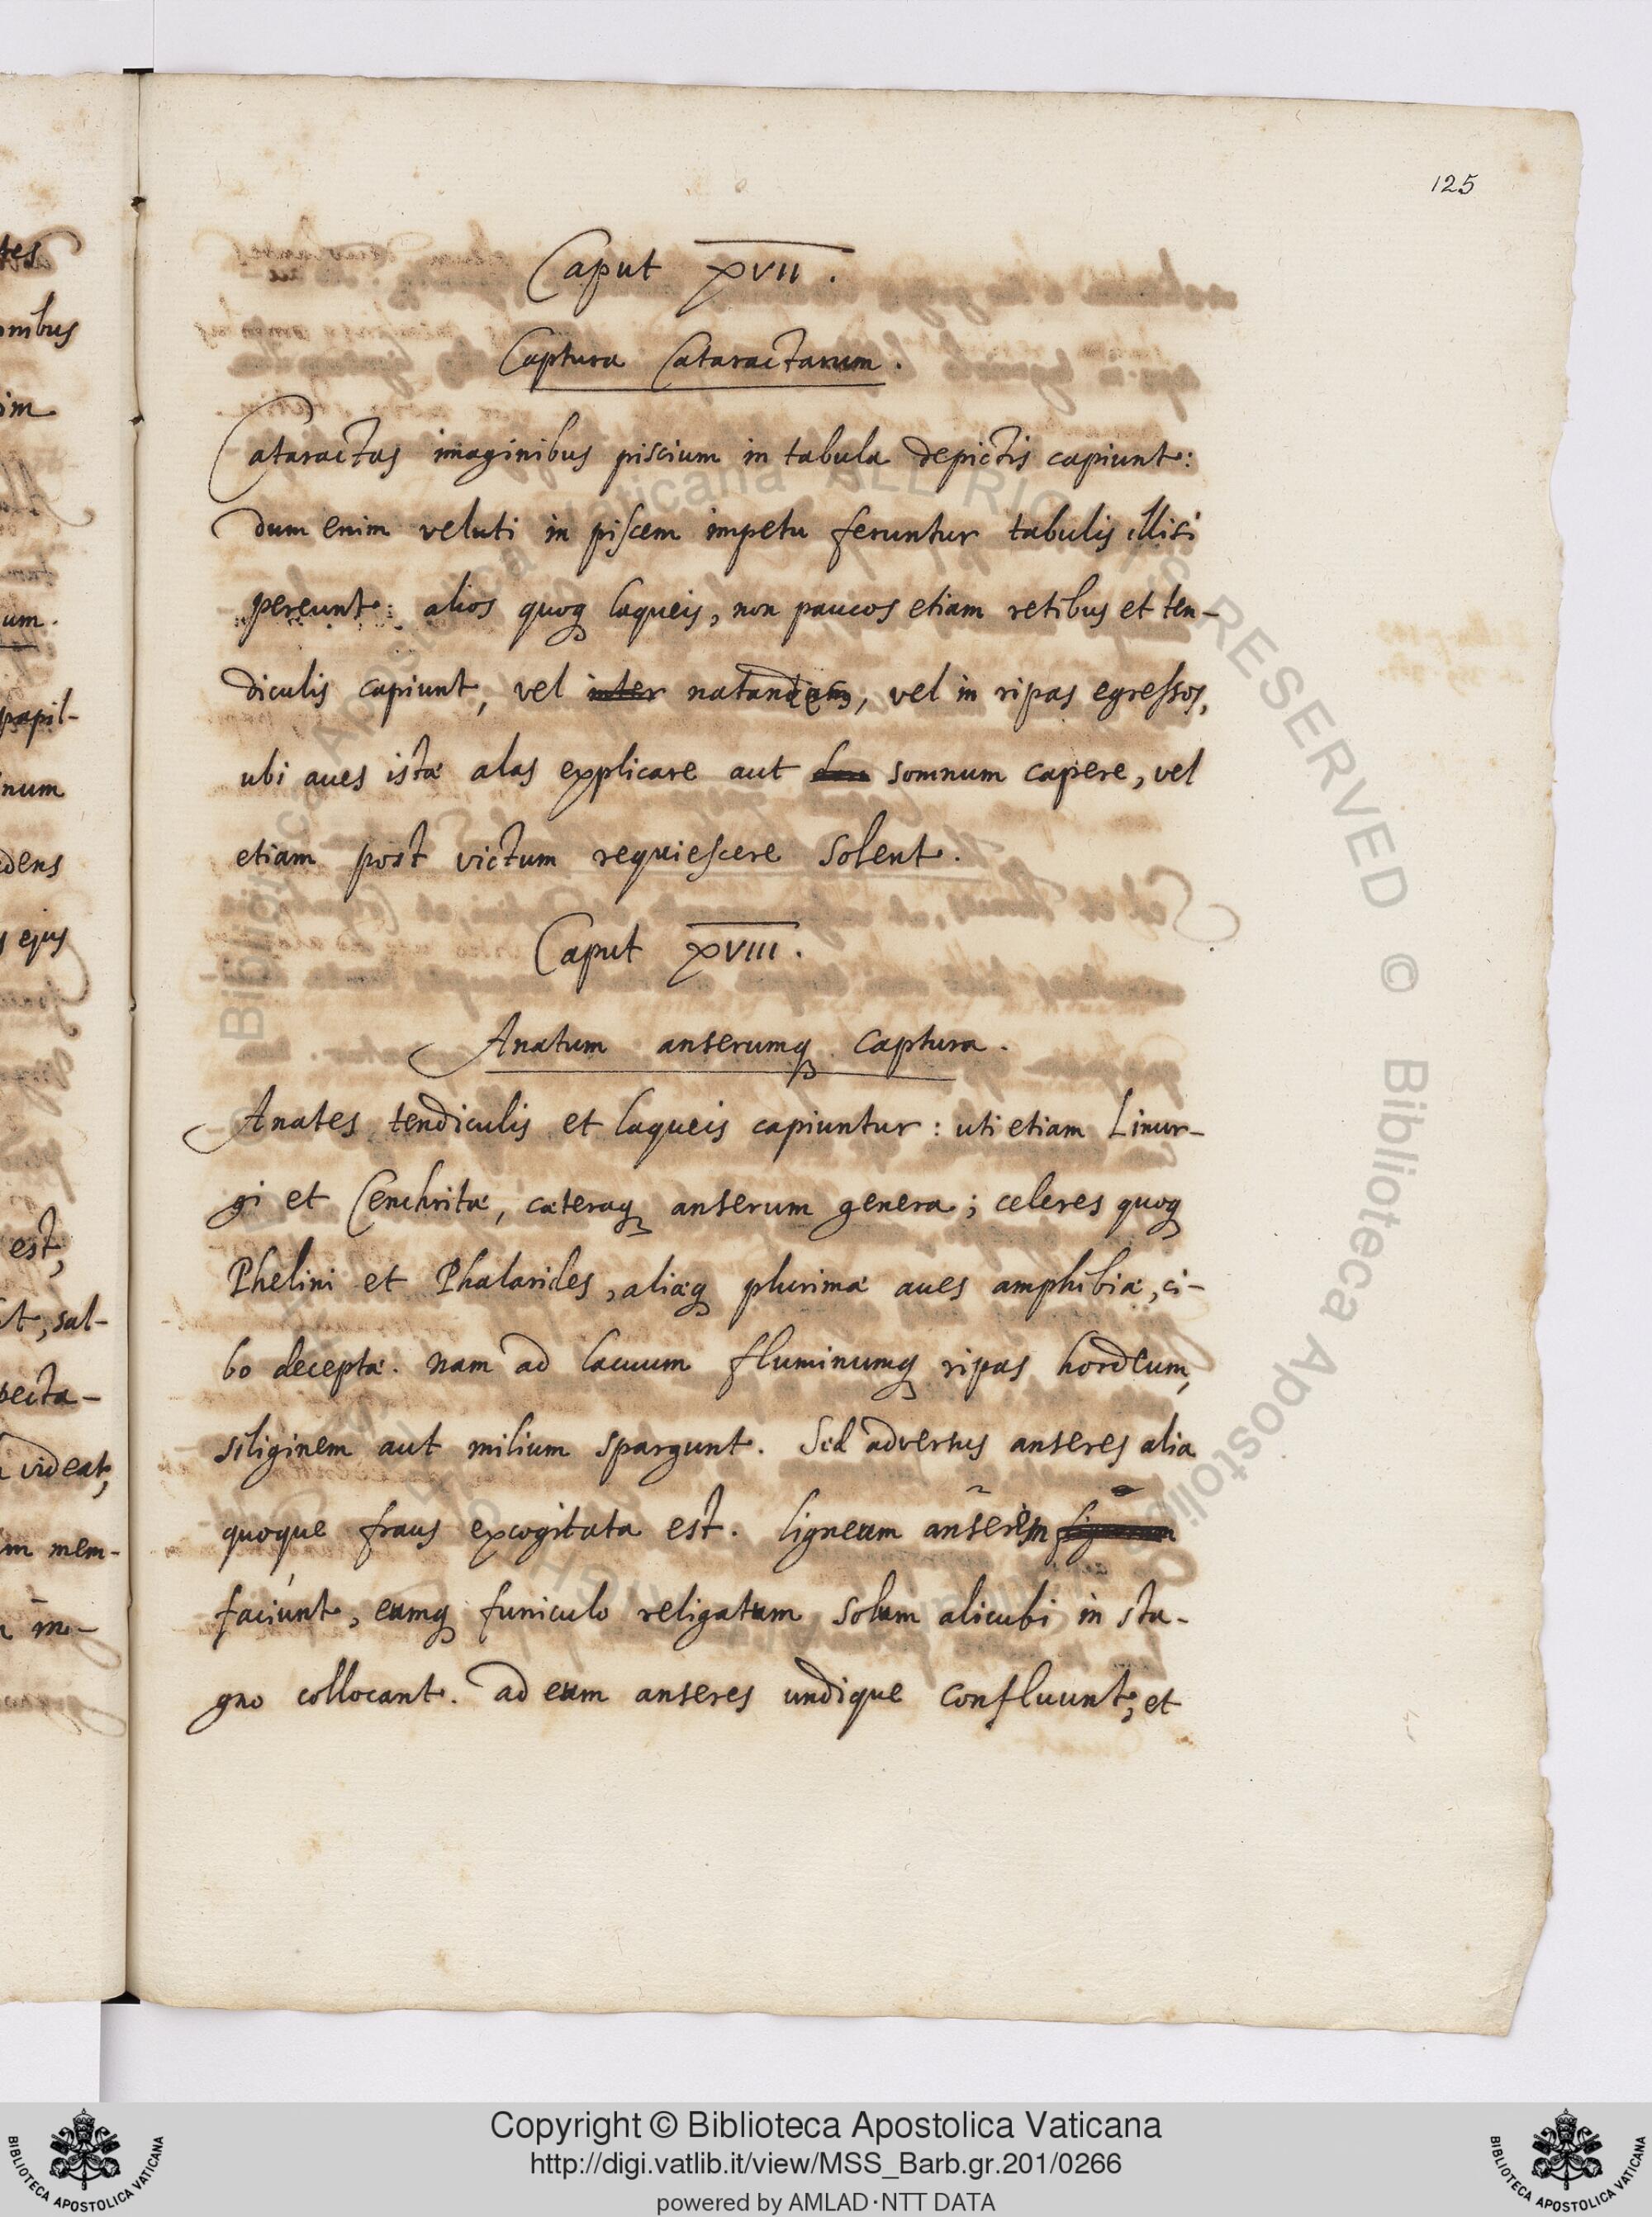 125
Caput XVII.
Captura Cataractarum.
Cataractas imaginibus piscium in tabula depictis capiunt:
dum enim veluti in piscem impetu feruntur tabulis illisi
pereunt: alios quoq laqueis, non paucos etiam retibus et ten-
diculis capiunt, vel inter, vel in ripas egressos,
ubi aues istæ alas explicare aut somnum capere, vel
etiam post victum requiescere solent.
Caput XVIII.
Anatum anserumq captura.
Anates tendiculis et laqueis capiuntur: uti etiam Linur-
gi et Cenchritæ, cæteraq anserum genera; celeres quoq
Phelini et Phalarides, aliæq plurimæ aues amphibiæ, ci-
bo deceptæ. nam ad lacuum fluminumq ripas hordeum,
siliginem aut milium spargunt. Sed adversus anseres alia
quoque fraus excogitata est. ligneum anserem
faciunt, eumq funiculo religatum solum alicubi in sta-
gno collocant. ad eum anseres undique confluunt, et
tes
onibus
im
um.
papil-
num
dens
s ejus
est,
t, sal-
pecta-
videat,
m mem-
Copyright © Biblioteca Apostolica Vaticana
http://digi.vatlib.it/view/MSS_Barb.gr.201/0266
powered by AMLAD·NTT DATA
BIBLIOTECA APOSTOLICA VATICANA
BIBLIOTECA APOSTOLICA VATICANA